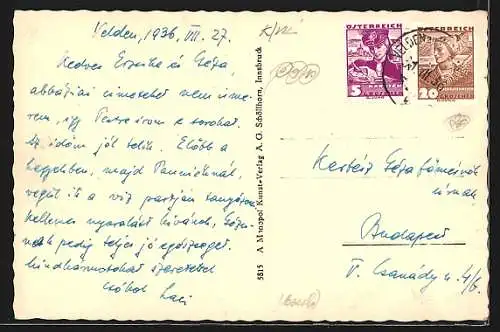 Velden, 1936, VII. 27.
Kedves Erzsike és Géza,
abbáziai címeteket nem isme-
rem, így Pestre írom e sorokat.
Az időm jól telik. Előbb a
hegyekben, majd
végül itt a víz partján
Kellemes nyaralást kívánok, Gézá-
nak pedig teljes jó egészséget.
Mindkettőtöket szeretettel
csókol Laci
5815 A Monopol Kunst-Verlag A. G. Schöllhorn, Innsbruck
ÖSTERREICH
5
GROSCHEN
ÖSTERREICH
20
GROSCHEN
VELDEN
Kertész Géza
úrnak
Budapest
V. Csanády u. 4/b.